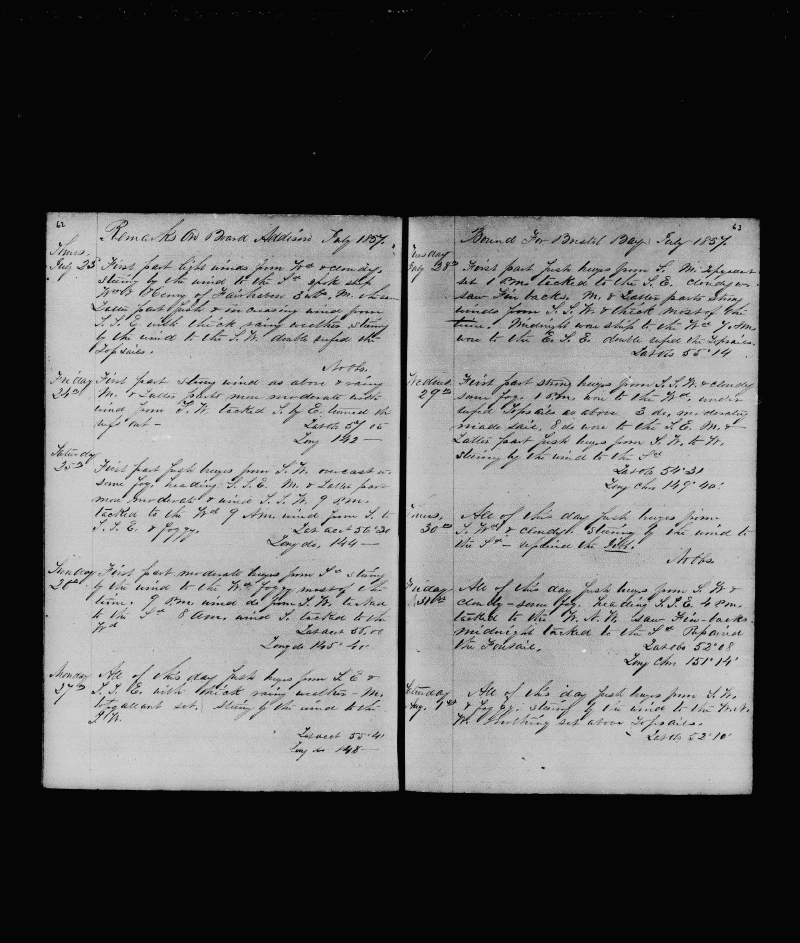 62
Remarks On Board Addison July 1857
Thurs.
July 23 First part light winds from Wd & cloudy
stering by the wind to the Sd spoke ship
Wm C of Fairhaven M.
Latter part fresh & increasing wind from
S. S. E with thick rainy weather stering
by the wind to the S. W. double reefed the
Topsails.
No obs
Friday First part strong wind as above & rainy
24th M. & Latter parts more moderate with
wind from S. W. tacked S. by E. turned the
reefs out -
Lat obs 57 15
Long 142 -
Saturday
25th First part fresh breeze from S. W. overcast &
some fog. heading S. S. E. M. & Latter part
more moderate & wind S. S. W. 9 P.m.
tacked to the Wd 9 Am. wind from S. to
S. S. E. & foggy. Lat acct 56° 30
Long do. 144 -
Sunday First part moderate breeze from Sd stering
26th by the wind to the Wd foggy most of the
time. 9 P.m. wind from S. W. tacked
to the Sd 8 am. wind S. tacked to the
Wd Lat acct 56.00
Long do 145° 40'
Monday All of this day fresh breeze from S E &
27th S. S. E. with thick rainy weather - M.
topgallant set. stering by the wind to the
S W.
Lat acct 55° 41
Long do 148 -
63
Bound For Bristol Bay July 1857.
Tuesday
July 28th First part fresh breeze from S. M. topgallant
set 1 P.m. tacked to the S. E. cloudy &
saw Fin backs. M. & Latter parts strong
winds from S. S. W. & thick most of the
time. Midnight wore ship to the Wd 7 Am.
wore to the E. S. E. double reefed the Topsails.
Lat obs 55° 14
Wednes First part strong breeze from S. S. W. & cloudy
29th some fog. 1 P.m. wore to the Wd. under
reefed Topsails as above 3 do. moderately
made sail. 8 do wore to the S. E. M. &
Latter part fresh breeze from S. W. to W.
stering by the wind to the Sd
Lat obs 54° 31
Long Chr 149° 40'
Thurs. All of this day fresh breeze from
30th S. Wd & cloudy. stering by the wind to
the Sd - repaired the Jibb.
No obs
Friday All of this day fresh breeze from S. W &
31st cloudy - some fog. heading S. S. E. 4 P.m.
tacked to the W. N. W. saw Fin-backs.
midnight tacked to the Sd Repaired
the Foresail. Lat obs 52° 08
Long Chr 151° 14'
Saturday All of this day fresh breeze from S. W.
Aug. 1st & foggy. stering by the wind to the W. N.
W. nothing set above Topsails.
Lat obs 52° 10'